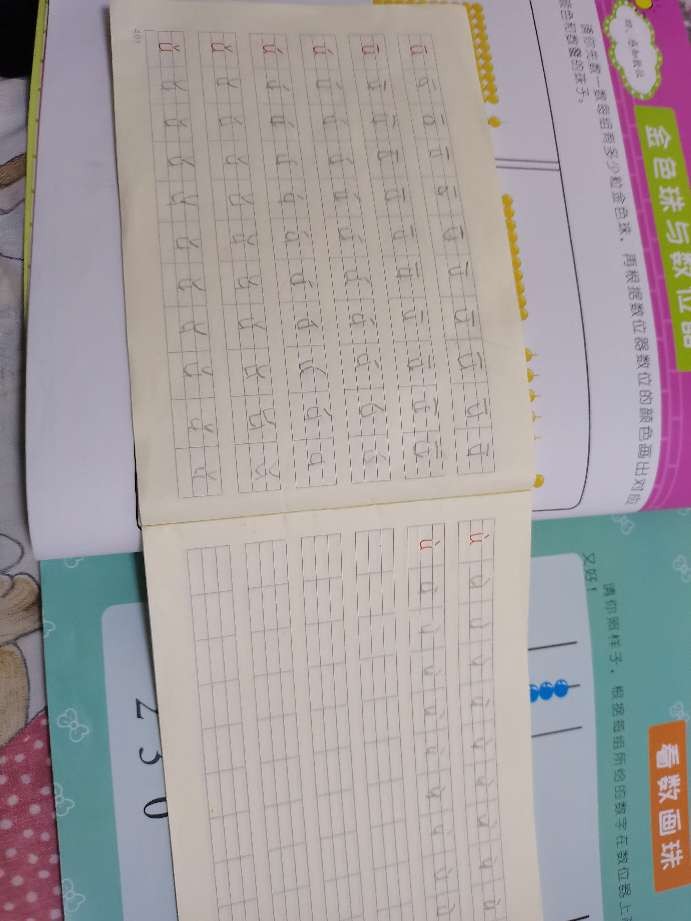 金色珠与数位器
请你先数一数每组有多少粒金色珠，再根据数位器数位的颜色画出对应
颜色和数量的珠子。
看数画珠
请你照样子，根据每组所给的数字在数位器上
又好！
2 3 0
ū ū ū ū ū ū ū ū ū ū ū
ū ū ū ū ū ū ū ū ū ū ū
ú ú ú ú ú ú ú ú ú ú ú
ú ú ú ú ú ú ú ú ú ú ú
ǔ ǔ ǔ ǔ ǔ ǔ ǔ ǔ ǔ ǔ ǔ
ǔ ǔ ǔ ǔ ǔ ǔ ǔ ǔ ǔ ǔ ǔ
ù ù ù ù ù ù ù ù ù ù
ù ù ù ù ù ù ù ù ù ù